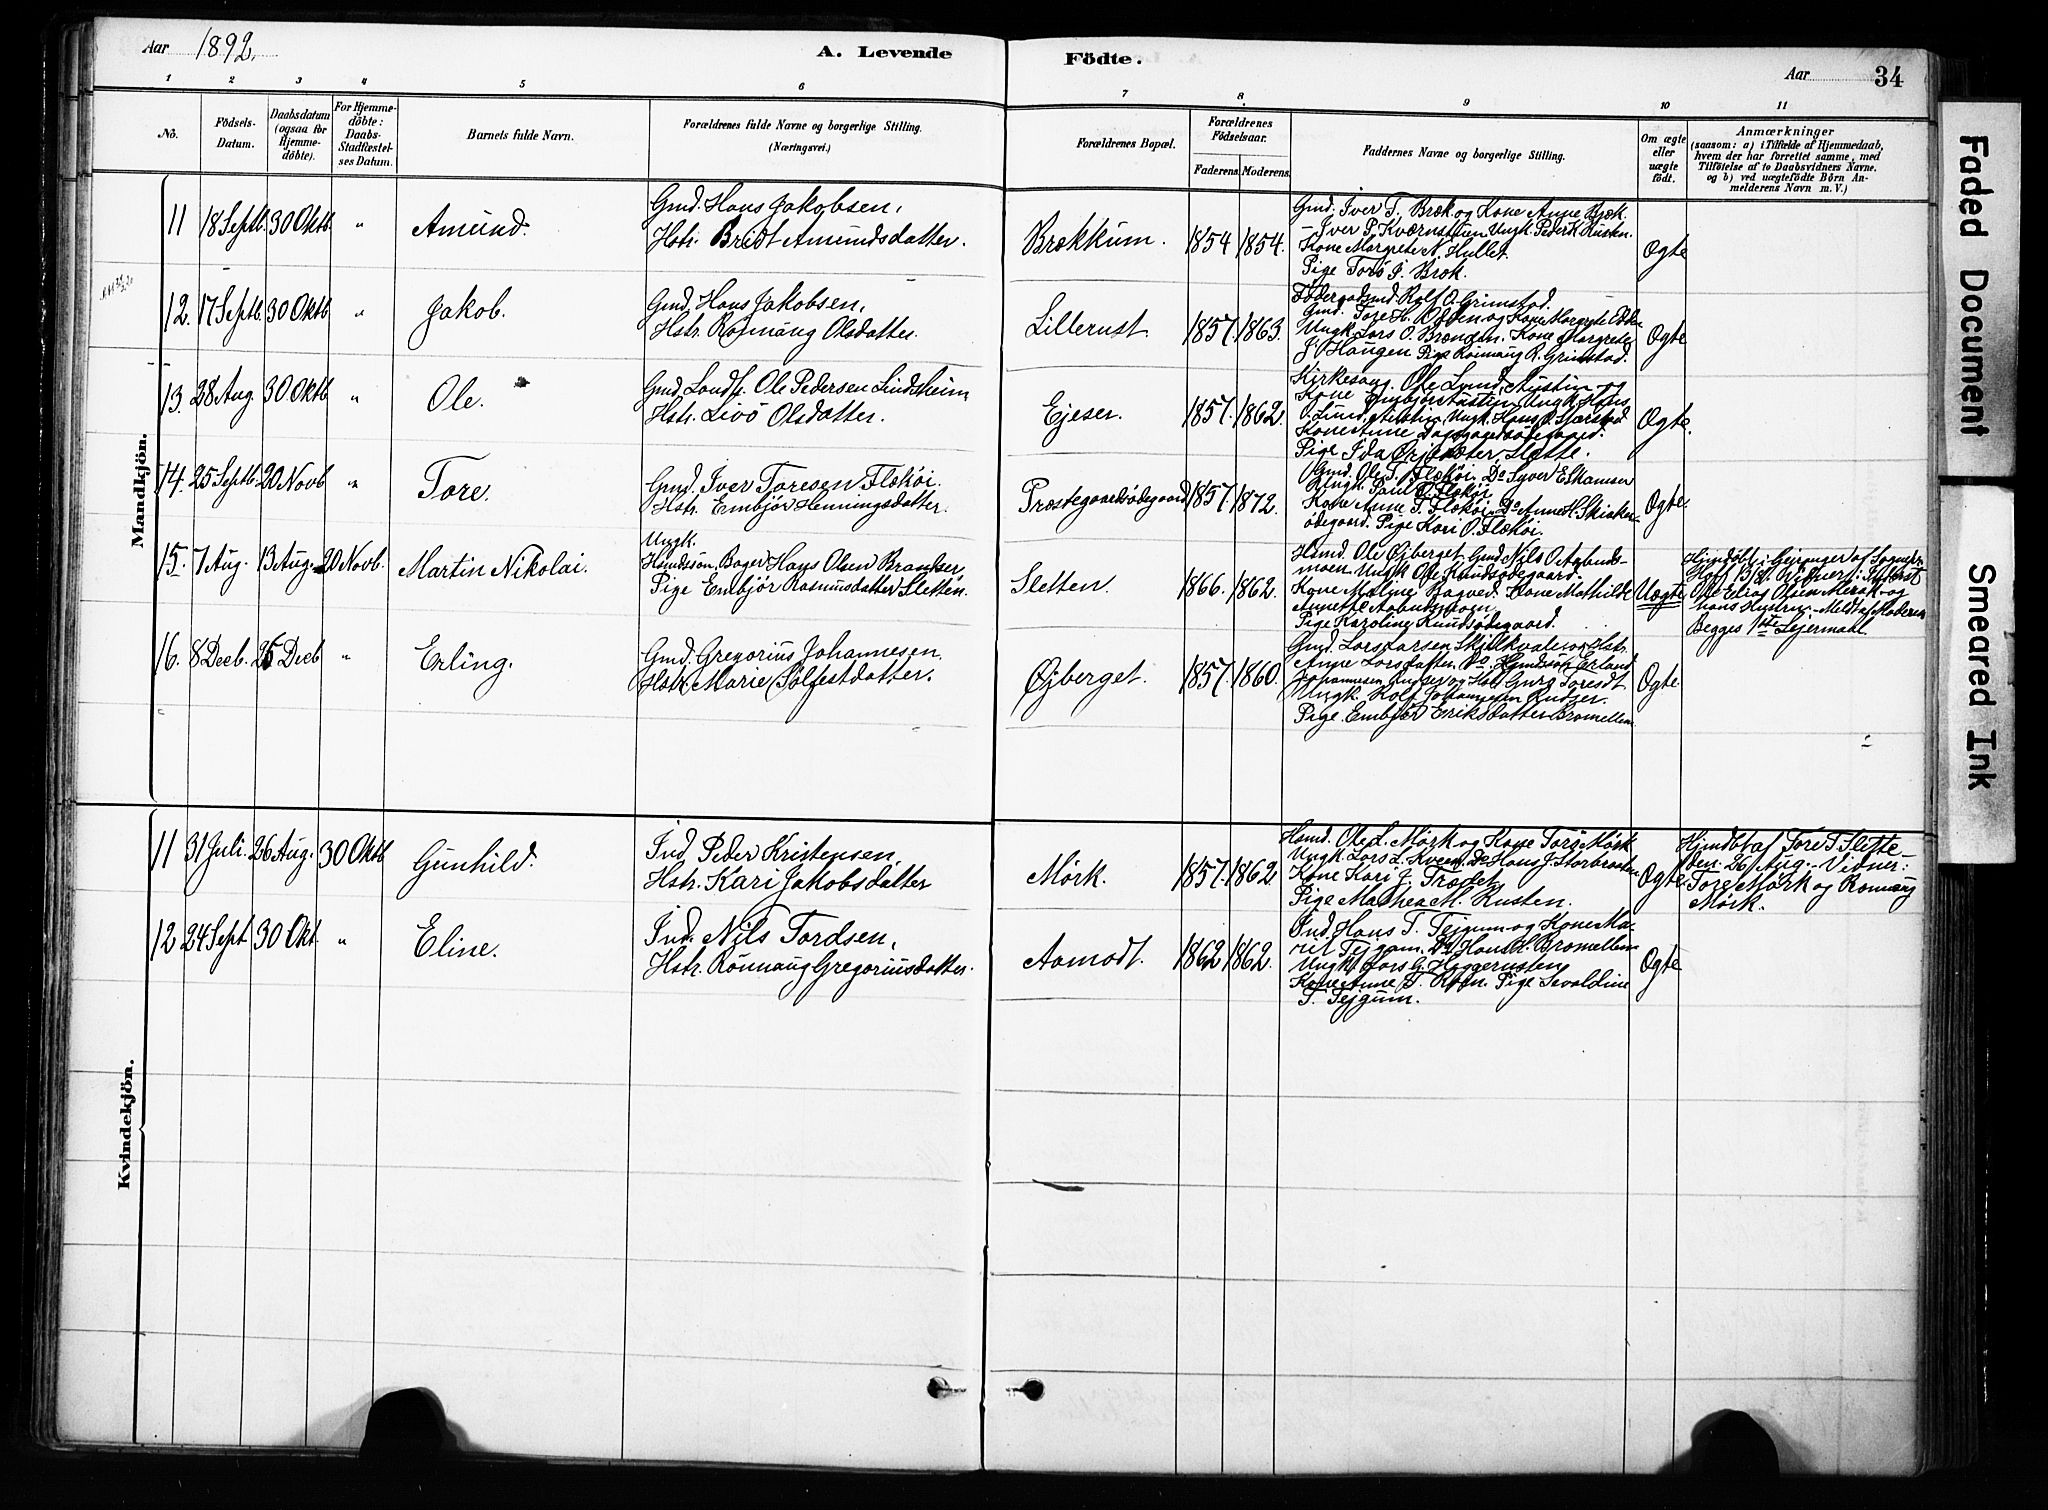 Aar 1892.
A. Levende Födte.
Aar 34
1 2 3 4 5 6 7 8 9 10 11
No.
Födsels-Datum.
Daabsdatum (ogsaa för Hjemme-döbte).
For Hjemme-döbte: Daabs-Stadfæstel-ses Datum.
Barnets fulde Navn.
Forældrenes fulde Navne og borgerlige Stilling.
(Næringsvei.)
Forældrenes Bopæl.
Forældrenes Födselsaar.
Faderens. Moderens.
Faddernes Navne og borgerlige Stilling.
Om ægte eller uægte födt.
Anmærkninger
(saasom: a) i Tilfælde af Hjemmedaab,
hvem der har forrettet samme, med
Tilföielse af to Daabsvidners Navne.
og b) ved uægtefödte Börn An-
melderens Navn m. V.)
Mandkjön.
11 18 Septb. 30 Oktb. " Amund.
Gmd. Hans Jakobsen,
Hstr. Bridt Amundsdatter.
Brækkum. 1854 1854.
Gmd. Iver T. Bræk og Kone Anne Bræk.
Iver P. Kværnstuen Ungk. Peder K. Rusten.
Kone Margrete N. Hullet.
Pige Torø J. Bræk.
Ogte
12. 17 Septb. 30 Oktb " Jakob.
Gmd. Hans Jakobsen,
Hstr. Rønnaug Olsdatter.
Lillerust. 1857. 1863.
Föderaadsmd. Rolf O. Grimstad.
Gmd. Tore H. og Kone Margrete
Ungk. Lars O. Brænden. Kone Margrete
J. Haugen Pige Rønnaug R. Grimstad.
Ogte
13. 28 Aug. 30 Oktb " Ole.
Gmd. Landh. Ole Pedersen Lindsheim
Hstr. Livö Olsdatter.
Ejeser. 1857. 1862.
Kirkesang. Ole Lund, Austin og
Kone Embjör Austin Ungk. Hans
O. Lund Ungk. Hans O.
Kone Anne
Pige Ida Slette.
Ogte.
14. 25 Septb. 20 Novb " Tore.
Gmd. Iver Toresen Flækøi.
Hstr. Embjör Henningsdatter.
Præstegaardsødegaard 1857. 1872.
Gmd. Ole T. Flækøi. Do Syver E.
Ungk. Paul P. Flækøi.
Kone Anne T. Flækøi. Do Anne H. Skiaker-
ødegaard. Pige Kari O. Flækøi.
Ogte.
15. 7 Aug. 13 Aug. 20 Novb. Martin Nikolai.
Ungk.
Hmdssøn, Bager Hans Olsen
Pige Embjör Rasmusdatter Sletten.
Sletten. 1866. 1862.
Hsmd. Ole Øjberget Gmd Nils O. Aabuds-
moen. Ungk Ole Knudsødegaard.
Kone Malene Kone Mathilde
Annette
Pige Karoline Knudsødegaard.
Uægte
Hjmdøbt i Geiranger af Sognepr.
Hoff 13/8. Vidner:
Ole Elias Olsen Merak og
hans Hustru. Meldt af Moderen
Begges 1ste Lejermaal.
16. 8 Decb. 25 Decb " Erling.
Gmd. Gregorius Johannesen.
Hstr. Marie Sølfestdatter.
Øjberget. 1857. 1860.
Gmd. Lars Larsen Skjelkvale og Hstr.
Anne Larsdatter. Do. Erland
Johannesen og Hstr Guro Toresdt
Ungk. Rolf Johannesen
Pige Embjör Eriksdatter Bromellem
Ogte
Kvindekjön.
11 31 Juli. 26 Aug. 30 Oktb Gunhild.
Ind. Peder Kristensen,
Hstr. Kari Jakobsdatter
Mørk. 1857. 1862.
Hsmd. Ole L. Mørk og Kone Torø Mørk
Ungk. Lars L. Kveen. Do Hans J. Storbraaten
Kone Kari J. Trædet
Pige Mathea M. Rusten.
Ogte
Hjmdøbt af Tore T. Slette-
den 26 Aug. Vidner:
Tore Mørk og Rønnaug
Mørk.
12 24 Sept. 30 Okt. " Eline.
Ind. Nils Tordsen,
Hstr. Rønnaug Gregoriusdatter.
Aamodt. 1862 1862.
Ind Hans T. Tejgum og Kone Ma-
rit Tejgum. Do Hans H. Bromellem
Ungk. Lars G. Haggerusten
Kone Anne T. Pige Sevaldine
T. Tejgum.
Ogte
Faded Document
Smeared Ink